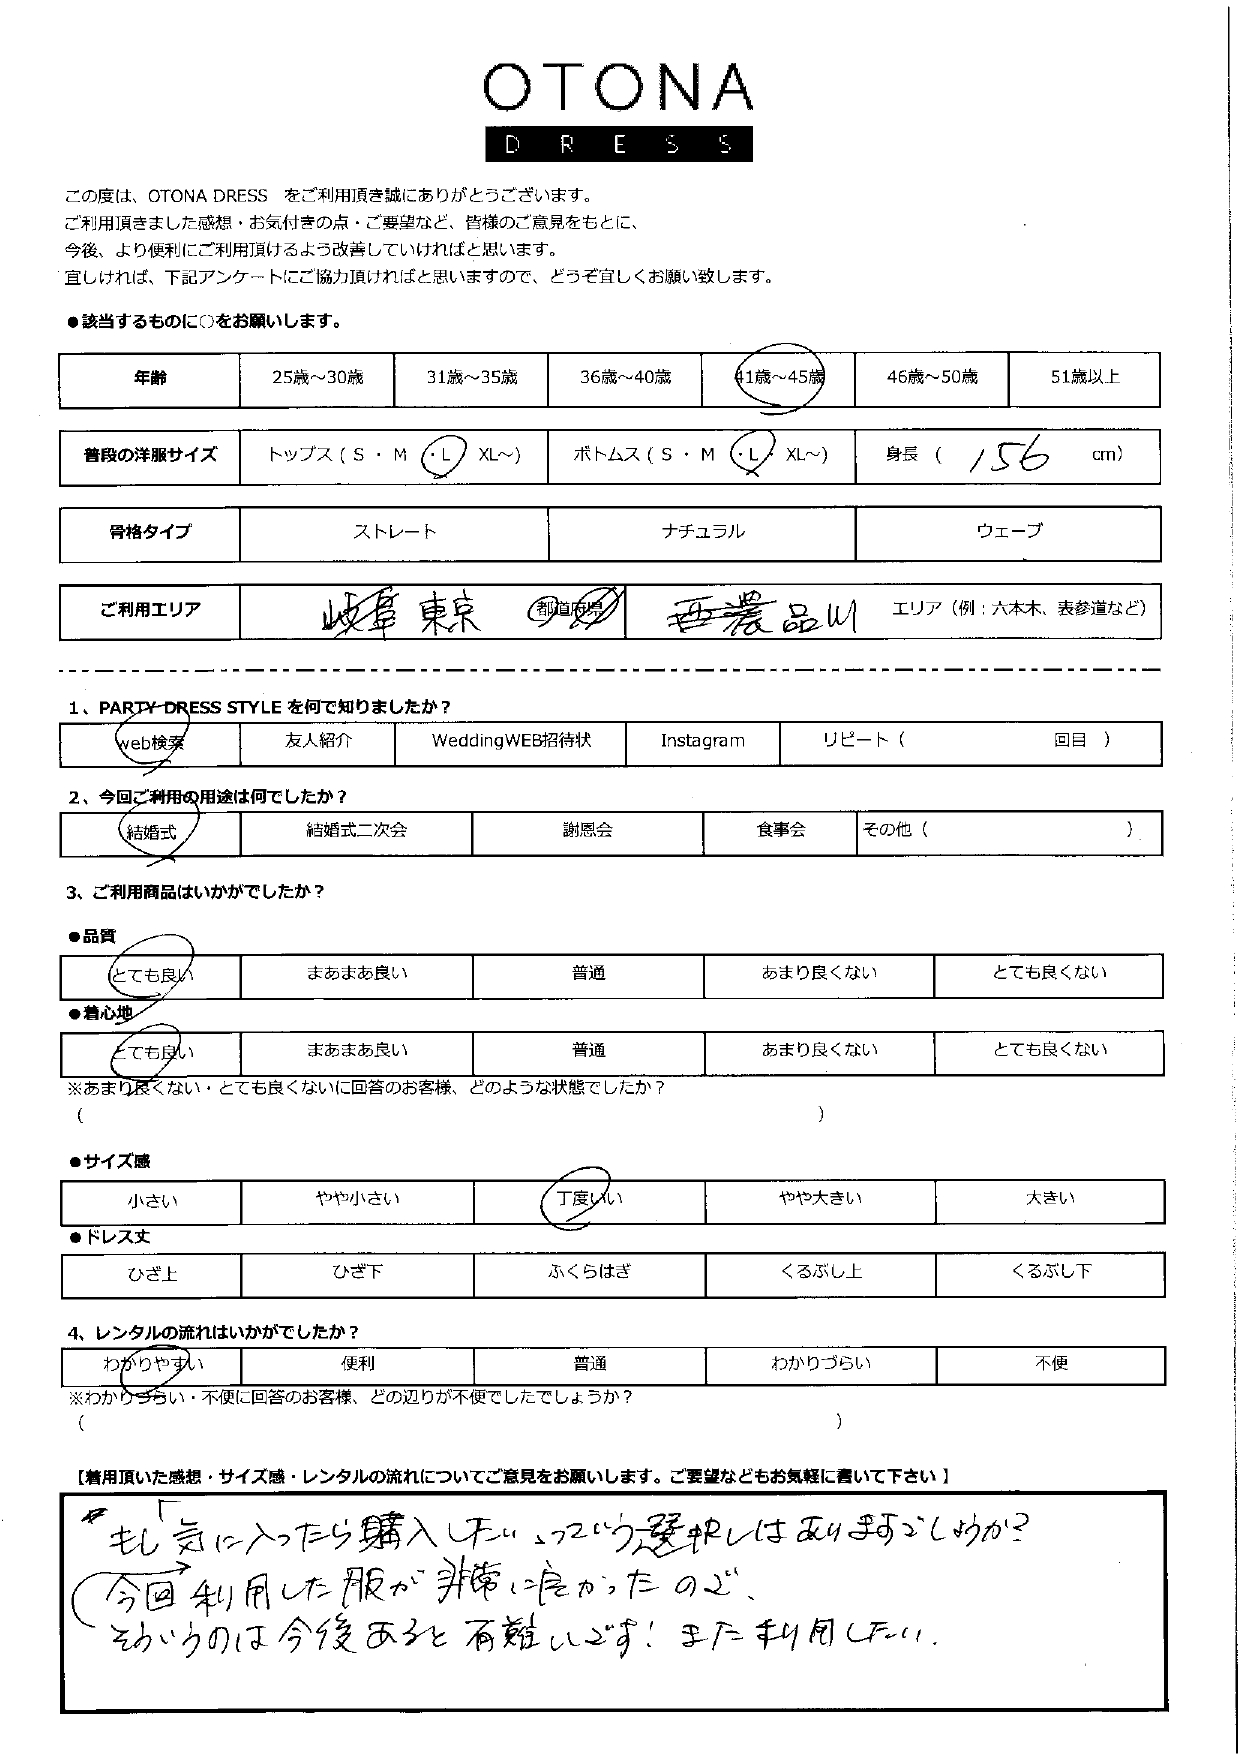 OTONA
DRESS
この度は、OTONA DRESS をご利用頂き誠にありがとうございます。
ご利用頂きました感想・お気付きの点・ご要望など、皆様のご意見をもとに、
今後、より便利にご利用頂けるよう改善していければと思います。
宜しければ、下記アンケートにご協力頂ければと思いますので、どうぞ宜しくお願い致します。
●該当するものに○をお願いします。
年齢 25歳～30歳 31歳～35歳 36歳～40歳 41歳～45歳 46歳～50歳 51歳以上
普段の洋服サイズ トップス（S ・ M ・L・ XL～) ボトムス（S ・ M ・L・ XL～) 身長 （ 156 cm）
骨格タイプ ストレート ナチュラル ウェーブ
ご利用エリア 岐阜 東京 都道府県 西濃 品川 エリア（例：六本木、表参道など）
1、PARTY DRESS STYLE を何で知りましたか？
web検索 友人紹介 WeddingWEB招待状 Instagram リピート（ 回目 ）
2、今回ご利用の用途は何でしたか？
結婚式 結婚式二次会 謝恩会 食事会 その他（ ）
3、ご利用商品はいかがでしたか？
●品質
とても良い まあまあ良い 普通 あまり良くない とても良くない
●着心地
とても良い まあまあ良い 普通 あまり良くない とても良くない
※あまり良くない・とても良くないに回答のお客様、どのような状態でしたか？
（ ）
●サイズ感
小さい やや小さい 丁度いい やや大きい 大きい
●ドレス丈
ひざ上 ひざ下 ふくらはぎ くるぶし上 くるぶし下
4、レンタルの流れはいかがでしたか？
わかりやすい 便利 普通 わかりづらい 不便
※わかりづらい・不便に回答のお客様、どの辺りが不便でしたでしょうか？
（ ）
【着用頂いた感想・サイズ感・レンタルの流れについてご意見をお願いします。ご要望などもお気軽に書いて下さい 】
もし「気に入ったら購入したい」っていう選択しはありますでしょうか？
今回利用した服が非常に良かったので、
そういうのは今後あると有難いです！また利用したい。